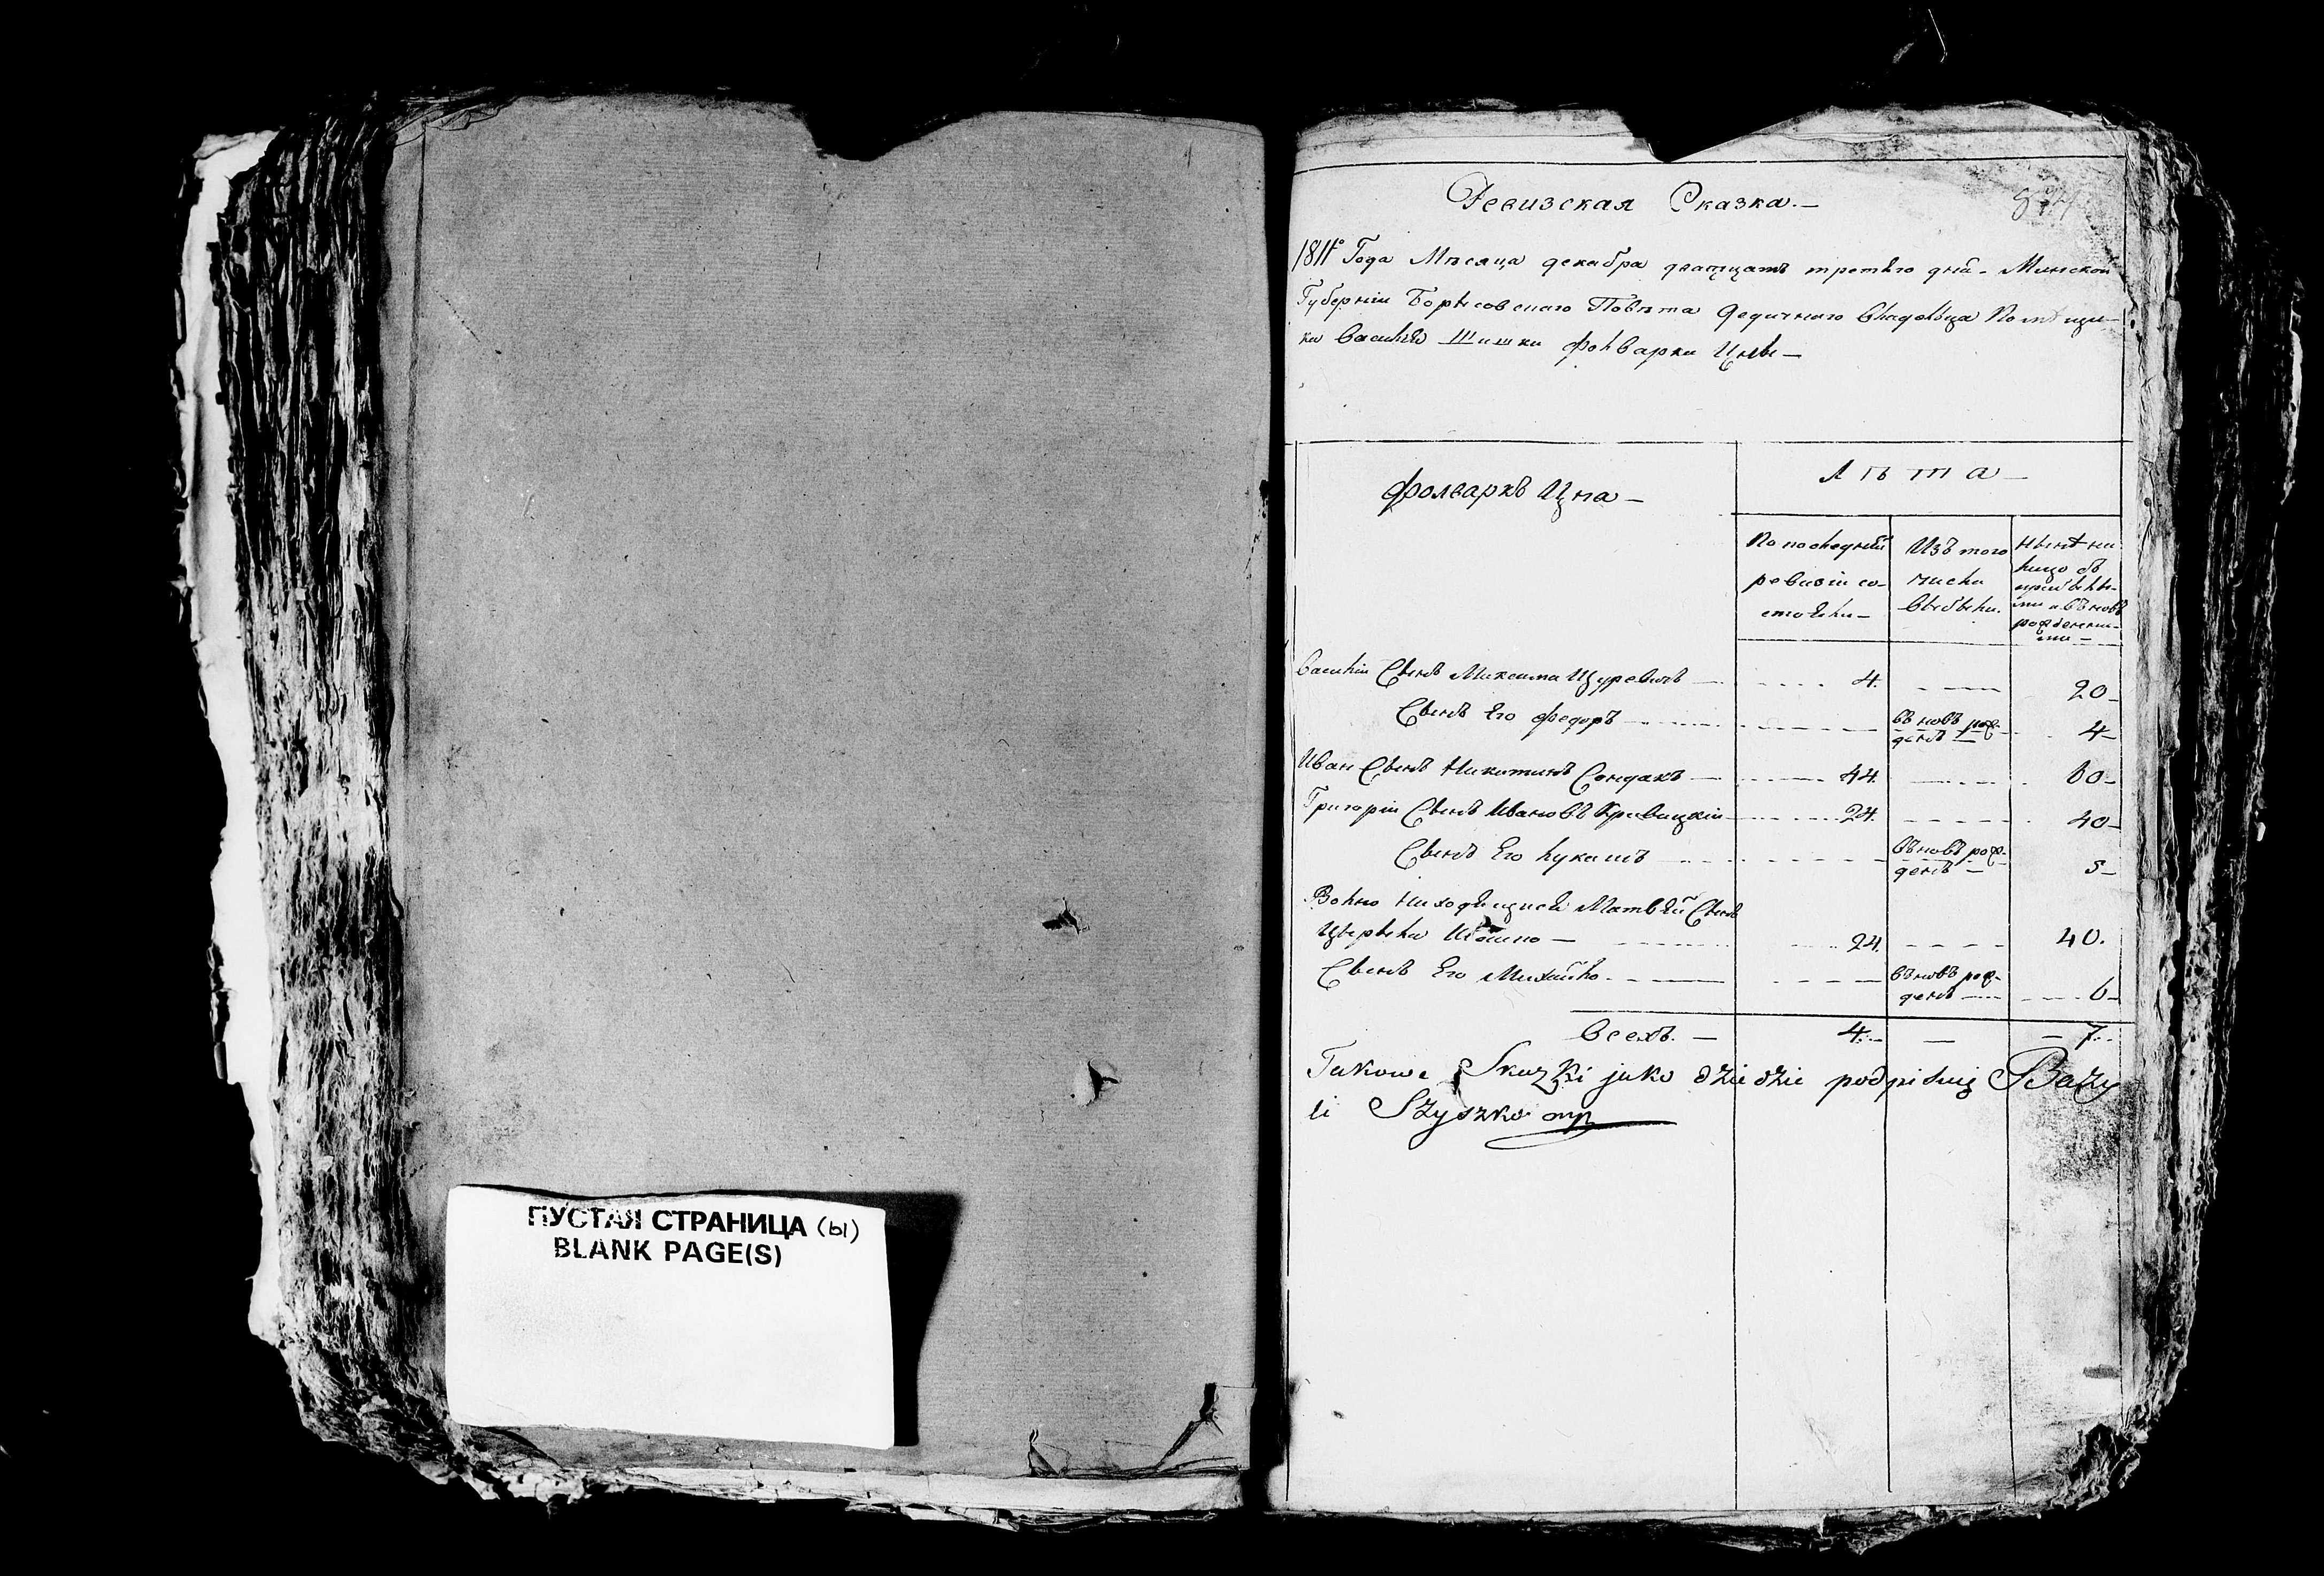 ПУСТАЯ СТРАНИЦА (ы)
BLANK PAGE(S)
Ревизская Сказка.—
1811го Года Мѣсяца декабря двадцать третьго дня. Минской
Губерніи Борысовскаго Повѣта Дедичного Владельца Помѣщи-
ка Василія Шишки Фольварка Цны—
Фольваркъ Цна—
Лѣта—
По последней
ревизіи со-
стояли—
Изъ того
числа
выбыли.
Нынѣ на
лицо съ
прибылы-
ми и вьновь
рожденны-
ми—
Василій Сынъ Максима Щуревичъ — 4. — 20—
Сынъ Его Федоръ — вьновь рож-
денъ — 4—
Иван Сынъ Никитинъ Сендакъ — 44. — 60—
Григорій Сынъ Ивановъ Кривицкій — 24. — 40—
Сынъ Его Лукашъ — вьновь рож-
денъ — 5—
Вольно Находящися Матвей Сынъ
24. — 40.
Сынъ Его Михайло — вьновь рож-
денъ — 6—
Всехъ. — 4. — 7.
Takowe Skazki jako dziedzic podpisuię Bazy
li Szyszko mp